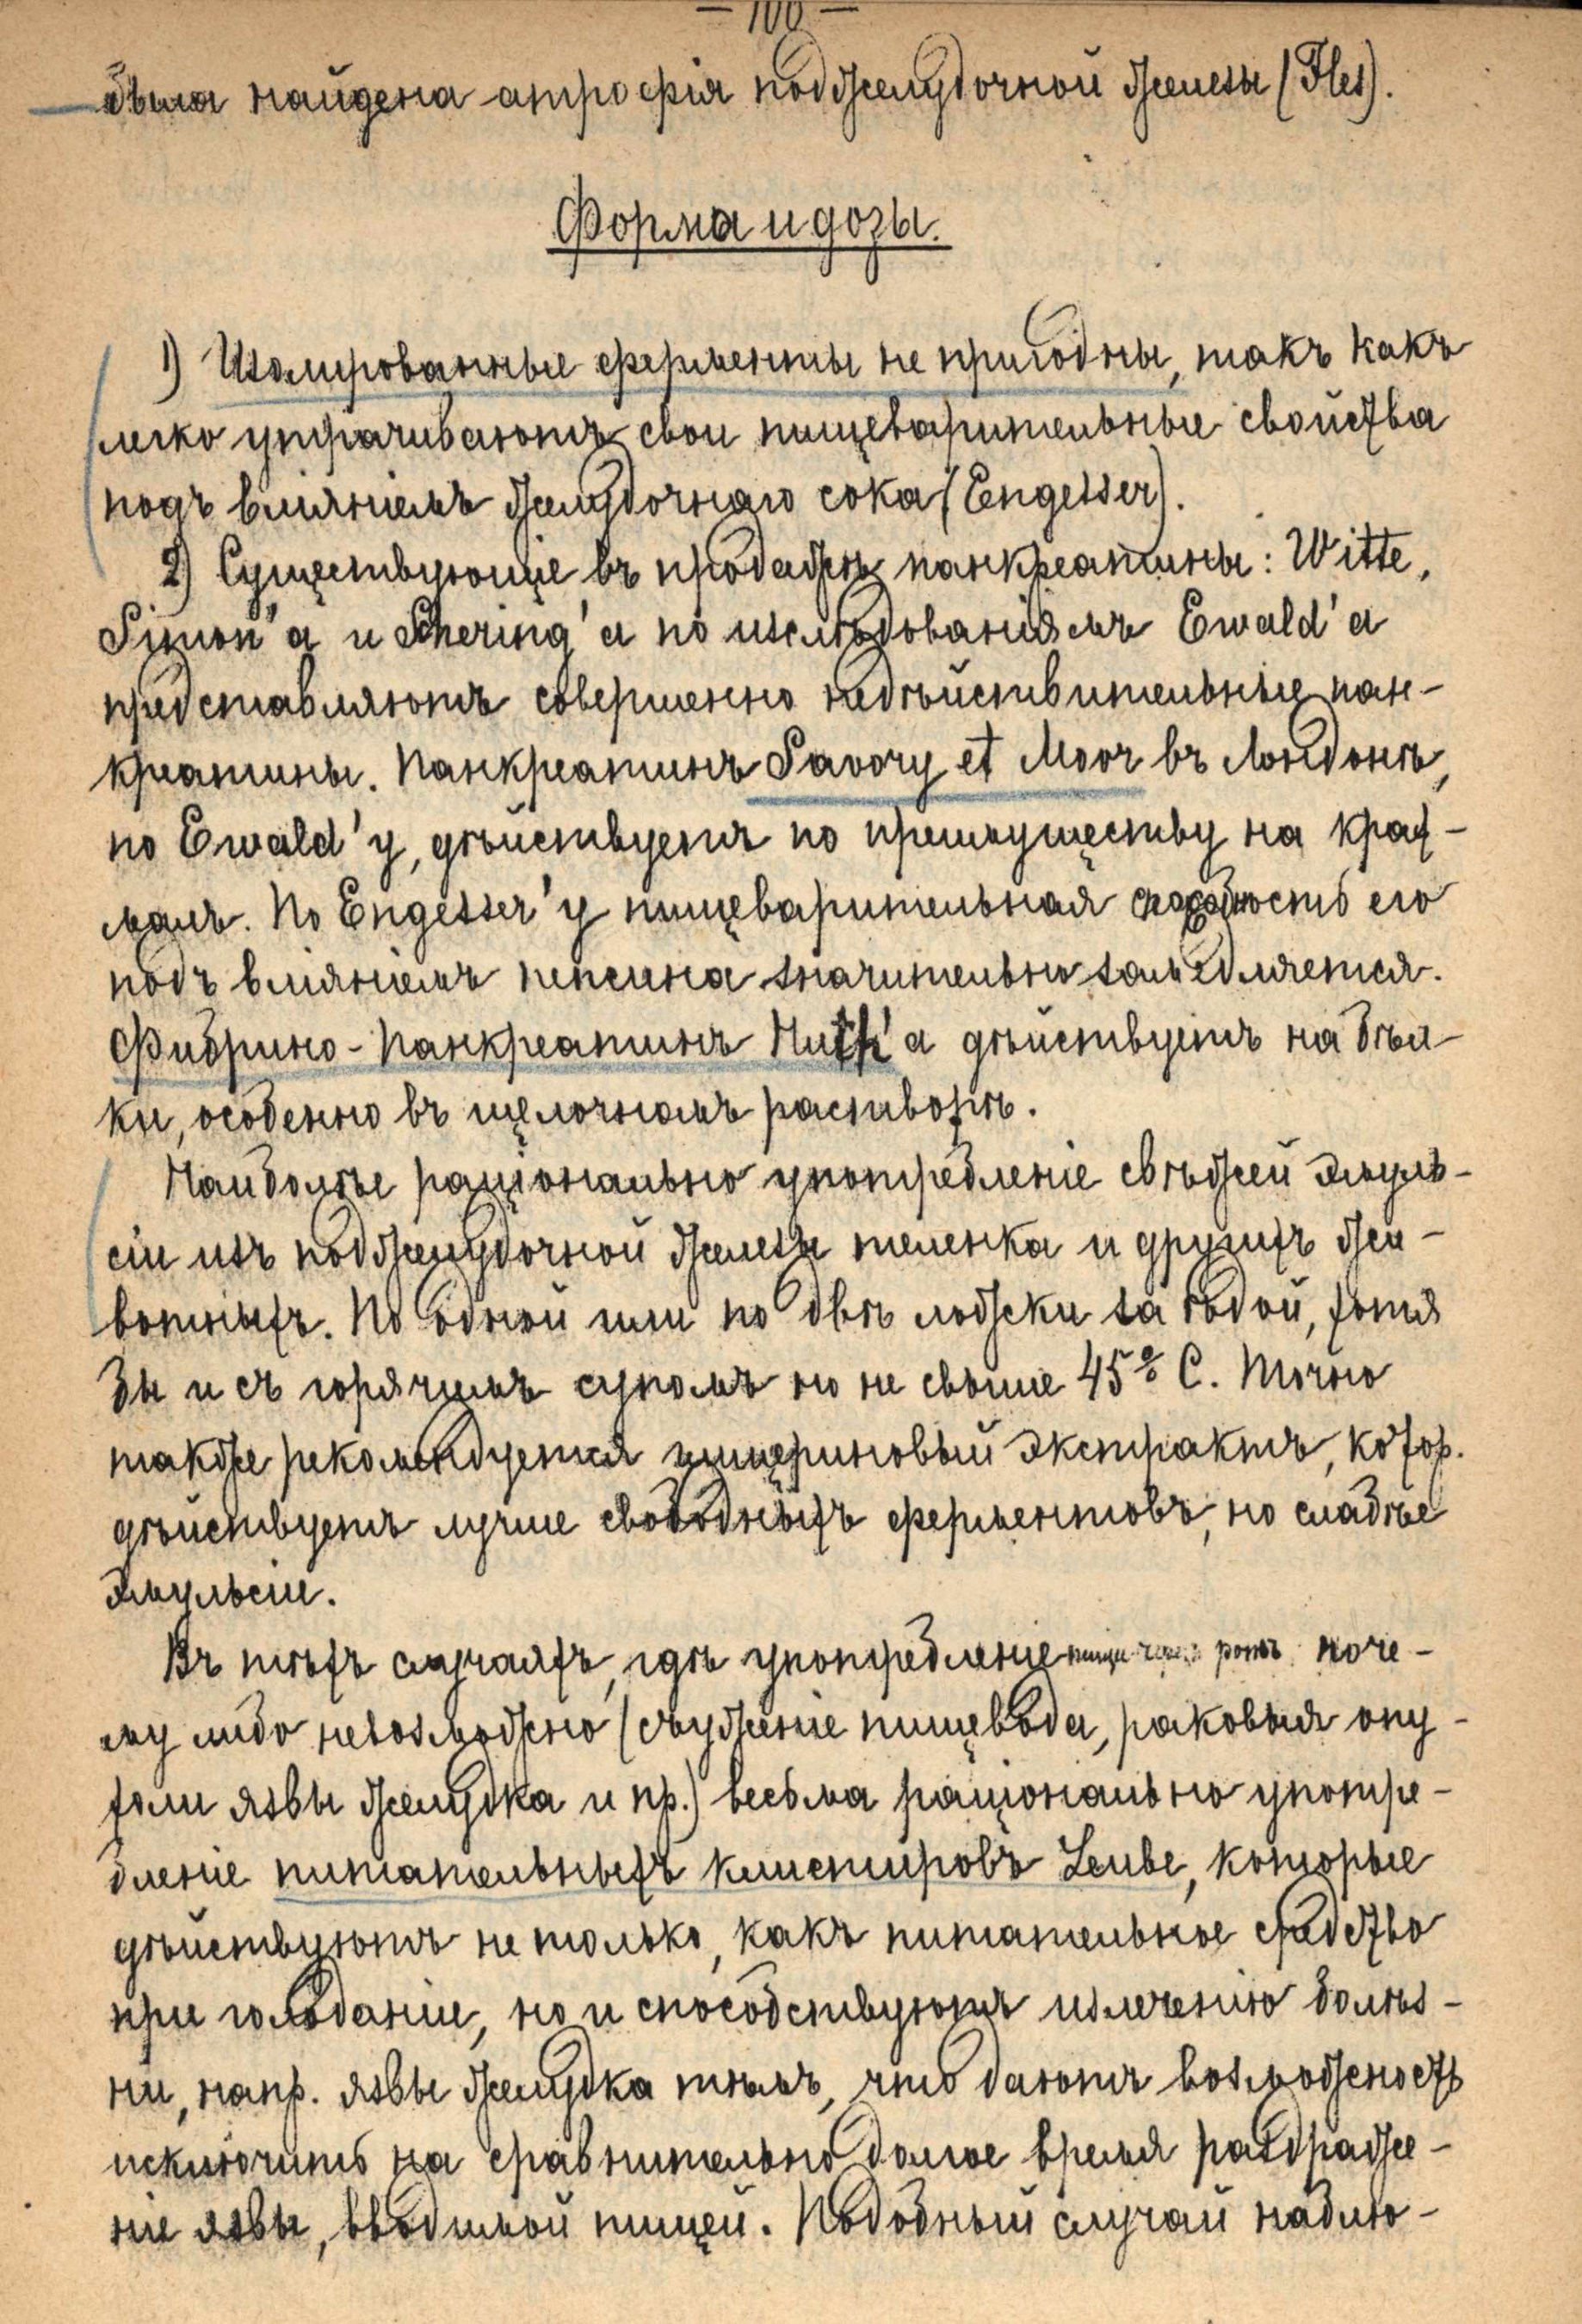 — 100 —
была найдена атрофія поджелудочной железы (Fles).
Форма и дозы.
1) Изолированные ферменты не пригодны, такъ какъ
легко утрачиваютъ свои пищеварительные свойства
подъ вліяніемъ желудочнаго сока (Engesser).
2) Существующіе въ продажѣ панкреатины: Witte,
Simon'а и Schering'а по изслѣдованіямъ Ewald'а
представляютъ совершенно недѣйствительные пан-
креатины. Панкреатинъ Savory et Moor въ Лондонѣ,
по Ewald'у, дѣйствуетъ по преимуществу на крах-
малъ. По Engesser'у пищеварительная способность его
подъ вліяніемъ пепсина значительно замедляется.
Фибрино-Панкреатинъ Huth'а дѣйствуетъ на бѣл-
ки, особенно въ щелочномъ растворѣ.
Наиболѣе раціонально употребленіе свѣжей эмуль-
сіи изъ поджелудочной железы теленка и другихъ жи-
вотныхъ. По одной или по двѣ ложки за ѣдой, хотя
бы и съ горячимъ супомъ но не свыше 45° С. Точно
также рекомендуется глицериновый экстрактъ, котор.
дѣйствуетъ лучше свободныхъ ферментовъ, но слабѣе
эмульсіи.
Въ тѣхъ случаяхъ, гдѣ употребленіе пищи черезъ ротъ поче-
му либо невозможно (съуженіе пищевода, раковыя опу-
холи язвы желудка и пр.) весьма раціонально употре-
бленіе питательныхъ клистировъ Leube, которые
дѣйствуютъ не только, какъ питательное средство
при голоданіи, но и способствуютъ излеченію болѣз-
ни, напр. язвы желудка тѣмъ, что даютъ возможность
исключить на сравнительно долгое время раздраже-
ніе язвы, вводимой пищей. Подобный случай наблю-